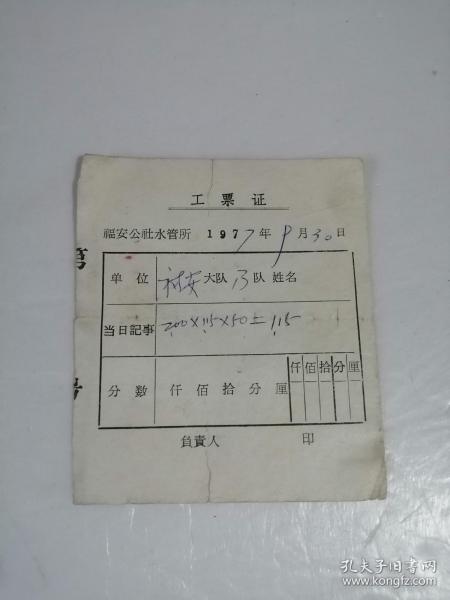 工票证
福安公社水管所 1977年9月30日
第
号
单位 福安大队13队 姓名
当日記事 200×115×50=115
分数 仟佰拾分厘 仟佰拾分厘
負責人 印
孔夫子旧书网
www.kongfz.com